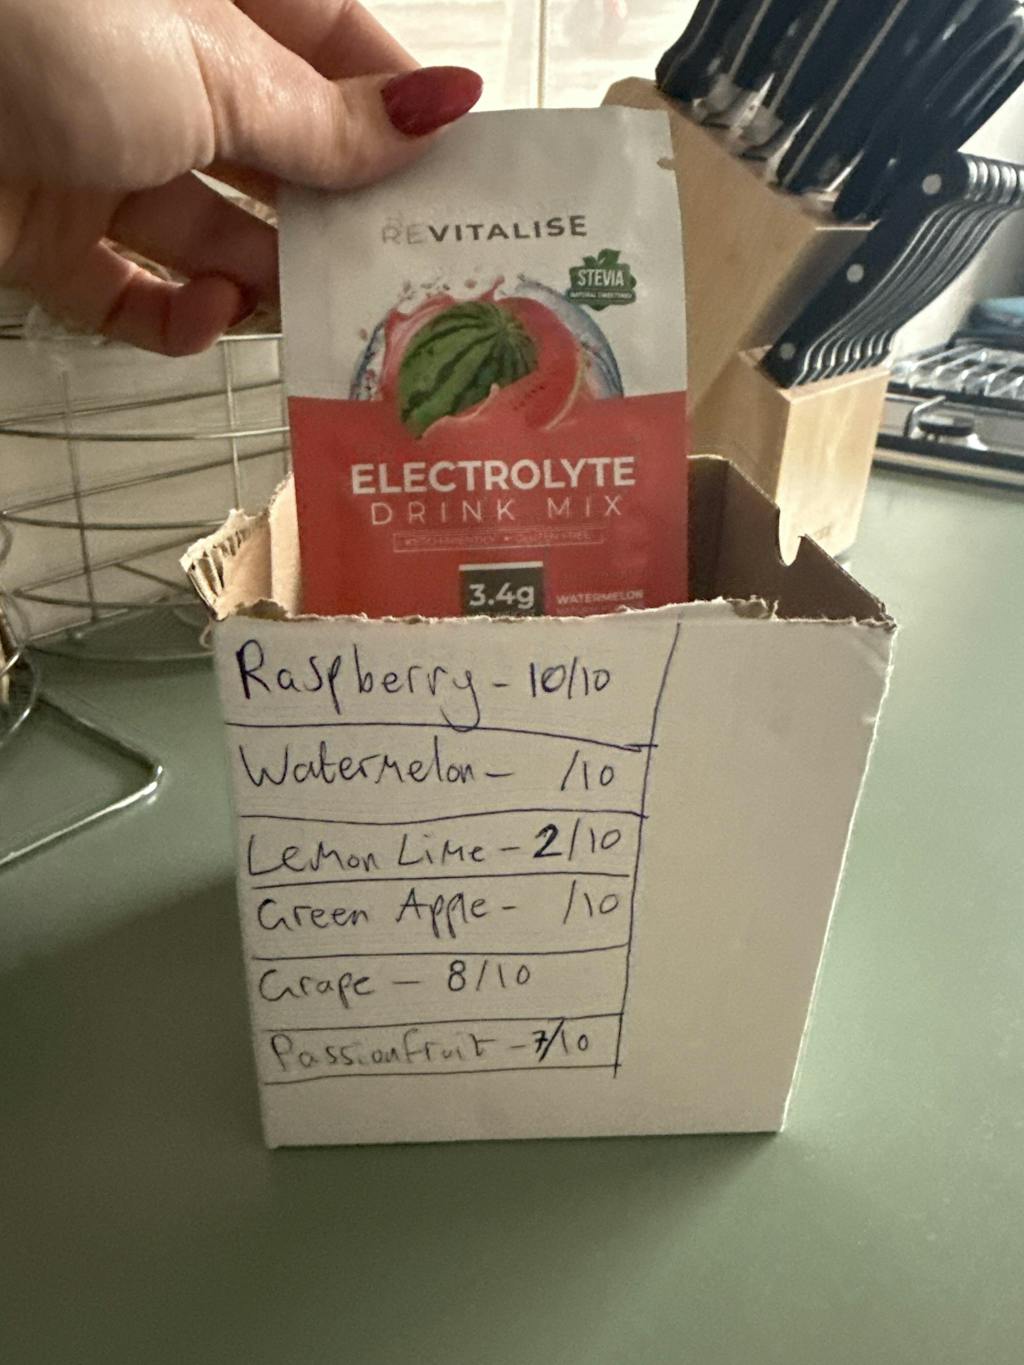 REVITALISE
STEVIA
NATURAL SWEETENER
ELECTROLYTE
DRINK MIX
GLUTEN FREE
3.4g
WATERMELON
Raspberry - 10/10
Watermelon - /10
Lemon Lime - 2/10
Green Apple - /10
Grape - 8/10
Passionfruit - 7/10